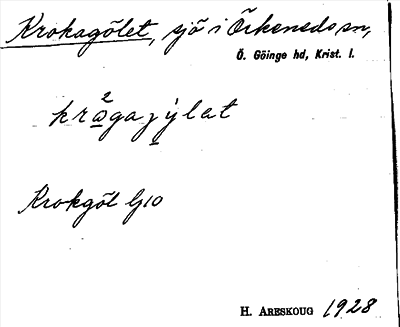 Krokagölet, sjö i Örkeneds sn,
Ö. Göinge hd, Krist. l.
2
kråga jýlat
Krokgöl
H. Areskoug 1928